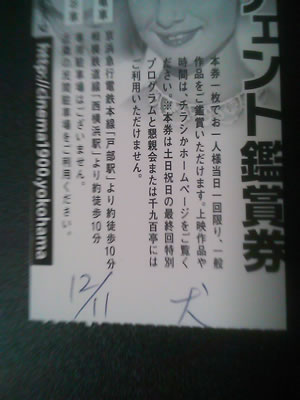 ェント鑑賞券
本券一枚でお一人様当日一回限り、一般
作品をご鑑賞いただけます。上映作品や
時間は、チラシかホームページをご覧く
ださい。※本券は土日祝日の最終回特別
プログラムと懇親会または千九百亭には
ご利用いただけません。
京浜急行電鉄本線「戸部駅」より約徒歩10分
相模鉄道線「西横浜駅」より約徒歩10分
専用駐車場はございません。
近隣の有料駐車場をご利用ください。
http://cinema1900.yokohama
12/11
犬